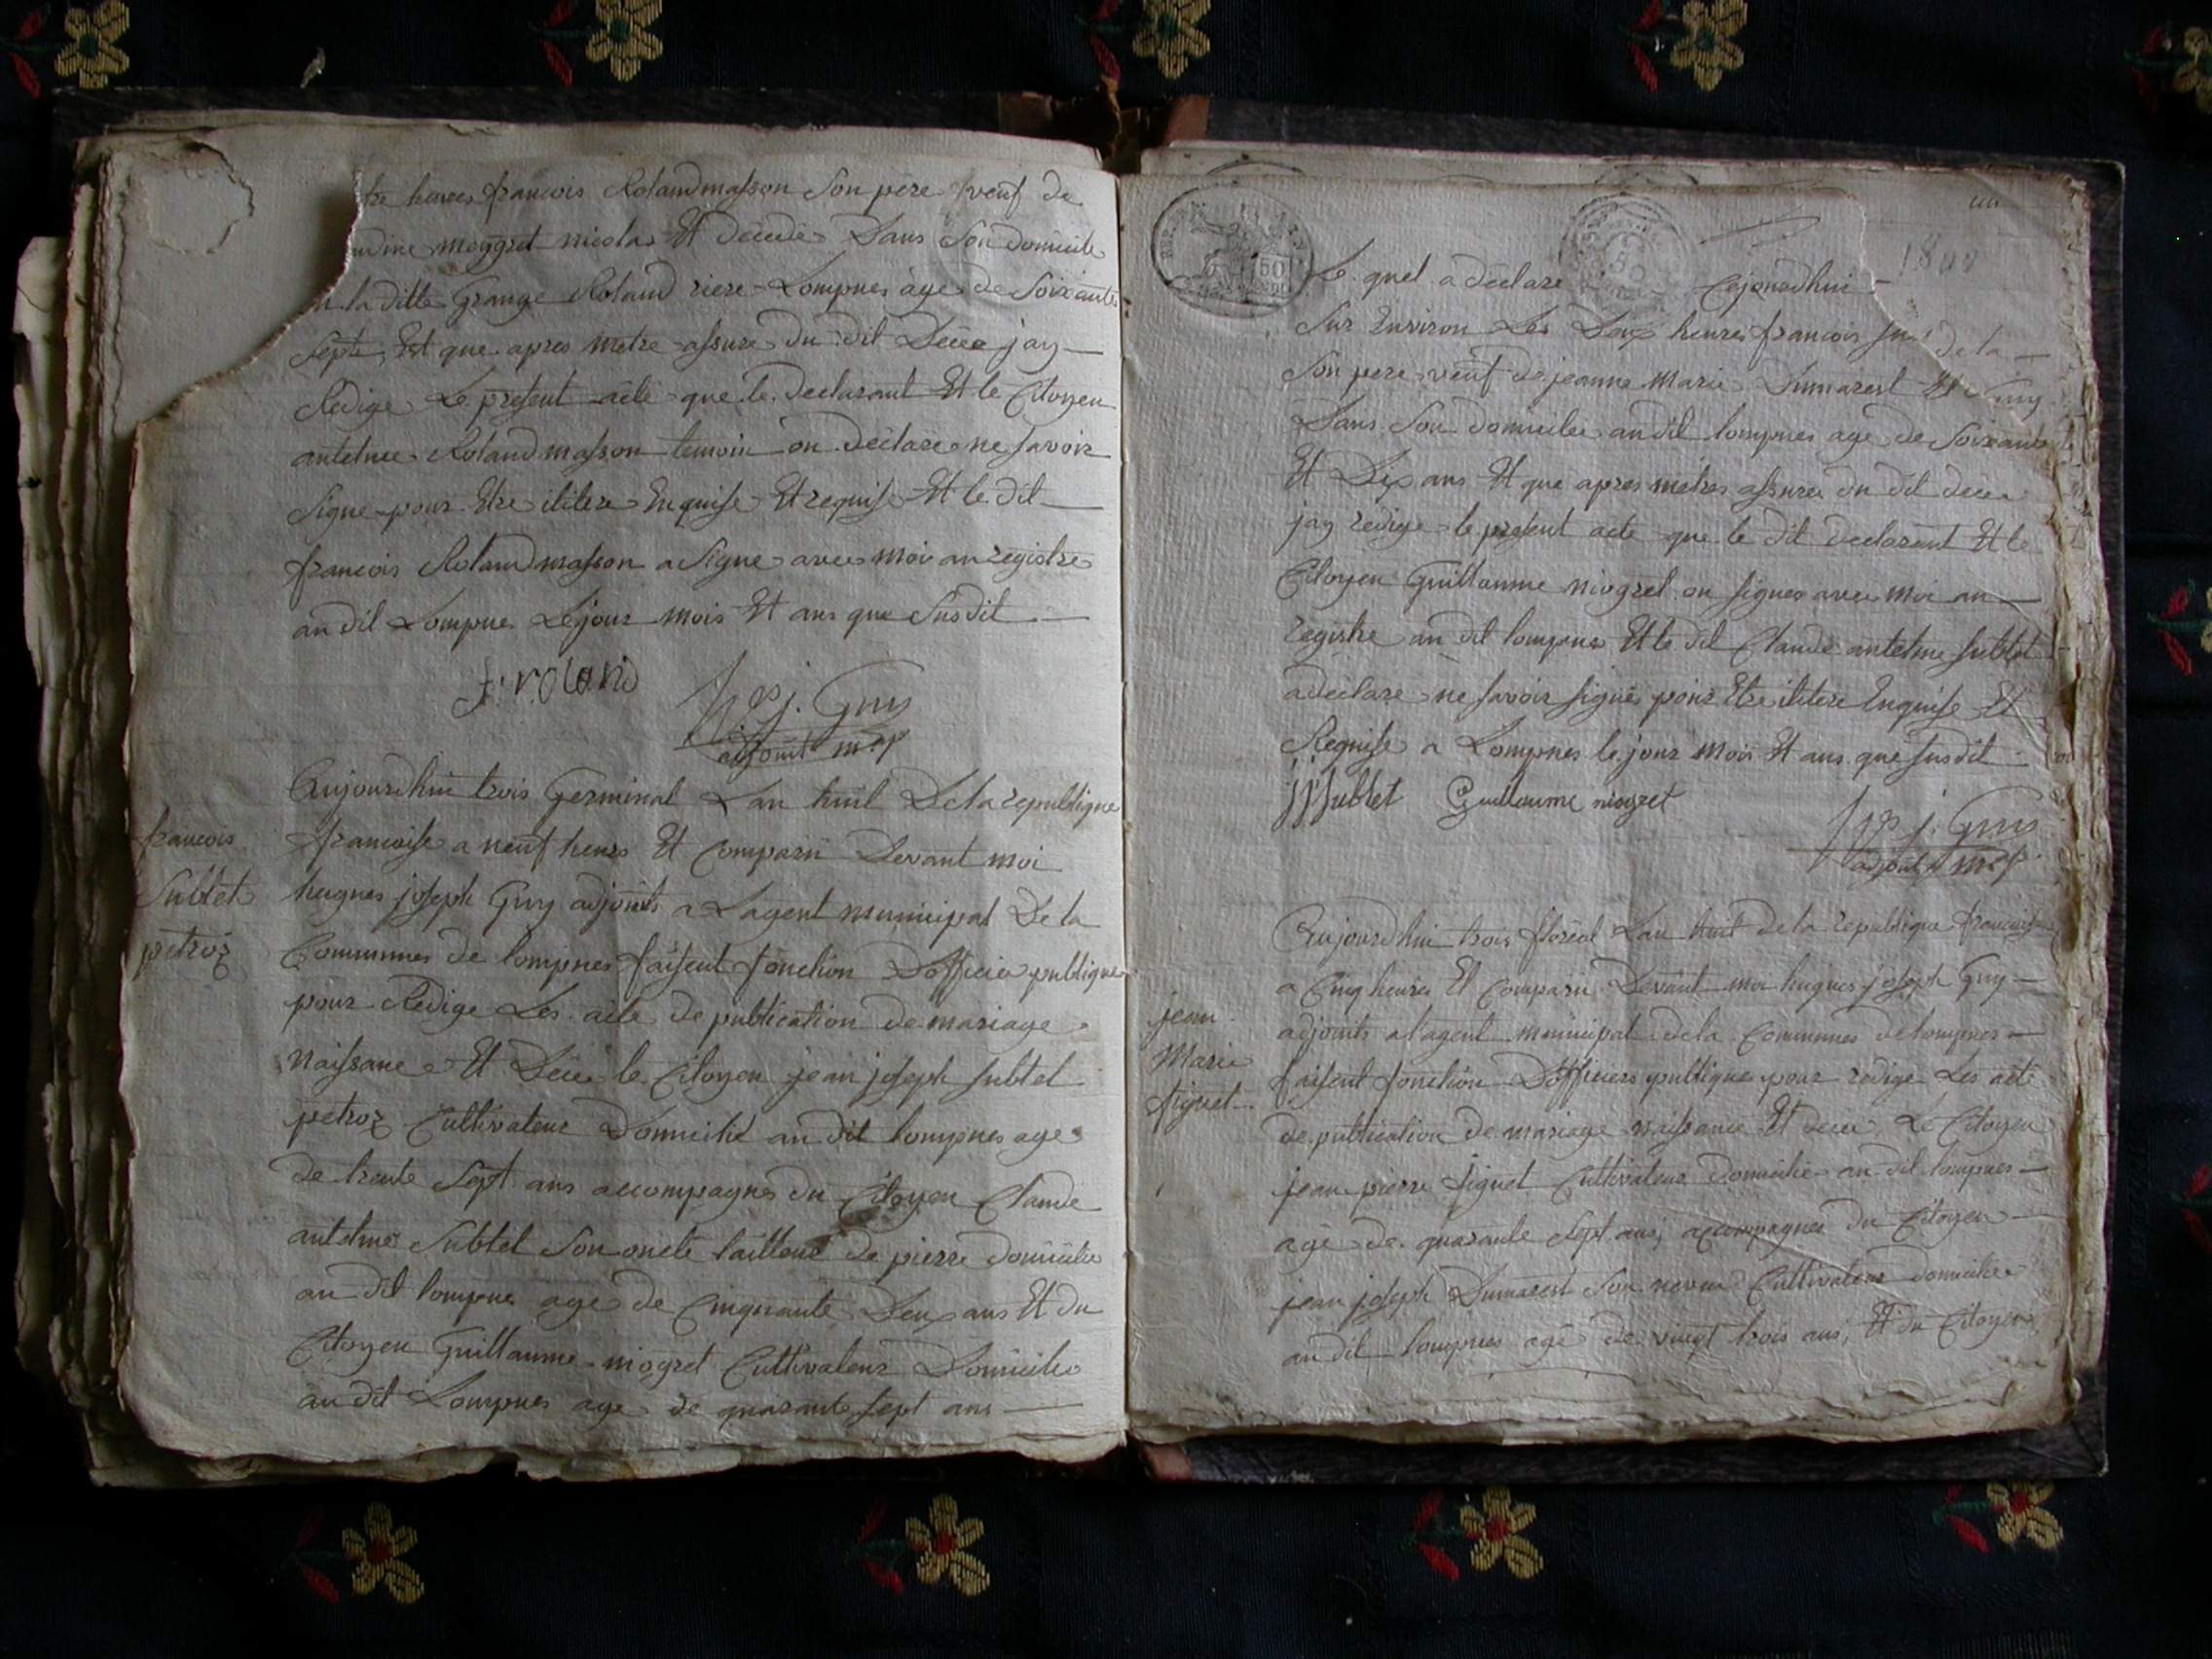 heures francois Roland masson Son pere veuf de
mogret nicolas Et décédé Dans Son domicile
la ditte Grange Roland riere Lompnes àgé de Soixante
Septs, Est que apres metre assure du dit Décée jay
Redige Le present acte que le Declarant Et le Citoyen
antelme Roland masson temoin on déclare ne savoir
Signe pour Etre ilitere Enquise Et requise Et le dit
francois Roland masson a Signe avec moi au registre
au dit Lompnes Le jour mois Et ans que Susdit
f. roland
h j. Guy
adjoint
Aujourdhui trois Germinal Lan huit De la republique
francois
francoise a neuf heures Et Comparu Devant moi
Sublet
hugues joseph Guy adjoints a Lagent municipal De la
petroz
Communes de lompnes faisent fonction Dofficier publique
pour Redige Les acte de publication de mariage
Naissance Et Décés le Citoyen jean joseph Sublet
petroz Cultivateur Domicilié au dit lompnes age
de trente Sept ans accompagnes du Citoyen Claude
antelme Sublet Son oncle tailleur de pierre domicilie
au dit lompnes age de Cinquante Deux ans Et du
Citoyen Guillaume niogret Cultivateur Domicilie
au dit Lompnes age de quarante Sept ans
50
50
1800
Le quel a declare Cejourdhui
Sur Environ Les Deux heures francois
de la
Son pere veuf de jeanne Marie Dumarest Et
Dans Son domicilie au dit lompnes age de Soixante
Et Dix ans Et que apres metres assures du dit décée
jay redige le present acte que le dit declarent Et le
Citoyen Guillaume niogret on signes avec moi au
registre au dit lompnes Et le dit Claude antelme Sublet
a declare ne savoir signé pour Etre ilitere Enquise Et
Requise a Lompnes le jour mois Et ans que susdit
jj Sublet Guillaume niogret
h j. Guy
adjoint
Aujourdhui trois floréal Lan huit de la republique francoise
a Cinq heures Et Comparu Devant moi hugues joseph Guy
jean
adjoints a lagent municipal de la Communes de lompnes
Marie
faisent fonction Dofficiers publique pour redige Les acte
figuet
de publication de mariage naissance Et décée Le Citoyen
jean pierre figuet Cultivateur domicilie au dit lompnes
age de quarante Sept ans, accompagnes du Citoyen
jean joseph Dumarest Son neveu Cultivateur domicilie
au dit lompnes agé de vingt trois ans, Et du Citoyen